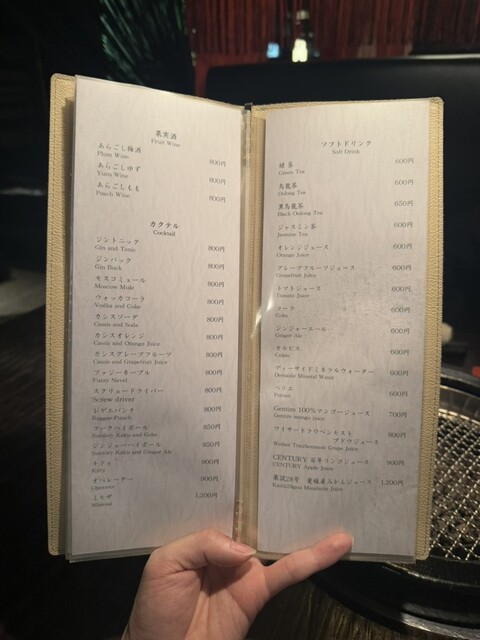 果実酒
Fruit Wine
あらごし梅酒 800円
Plum Wine
あらごしゆず 800円
Yuzu Wine
あらごしもも 800円
Peach Wine
カクテル
Cocktail
ジントニック 800円
Gin and Tonic
ジンバック 800円
Gin Buck
モスコミュール 800円
Moscow Mule
ウォッカコーラ 800円
Vodka and Coke
カシスソーダ 800円
Cassis and Soda
カシスオレンジ 800円
Cassis and Orange Juice
カシスグレープフルーツ 800円
Cassis and Grapefruit Juice
ファジーネーブル 800円
Fuzzy Navel
スクリュードライバー 800円
Screw driver
レゲエパンチ 800円
Reggae Punch
コークハイボール 850円
Suntory Kaku and Coke
ジンジャーハイボール 850円
Suntory Kaku and Ginger Ale
キティ 900円
Kitty
オペレーター 900円
Operator
ミモザ 1,200円
Mimosa
ソフトドリンク
Soft Drink
緑茶 600円
Green Tea
烏龍茶 600円
Oolong Tea
黒烏龍茶 650円
Black Oolong Tea
ジャスミン茶 600円
Jasmine Tea
オレンジジュース 600円
Orange Juice
グレープフルーツジュース 600円
Grapefruit Juice
トマトジュース 600円
Tomato Juice
コーラ 600円
Coke
ジンジャーエール 600円
Ginger Ale
カルピス 600円
Calpis
ディーサイドミネラルウォーター 600円
Deeside Mineral Water
ペリエ 600円
Perrier
Gentim 100%マンゴージュース 700円
Gentim mango juice
ワイサードラウベンモスト
ブドウジュース 800円
Weiber Traubenmost Grape Juice
CENTURY 百年リンゴジュース 900円
CENTURY Apple Juice
果試28号 愛媛産みかんジュース 1,200円
Kashi28gou Mandarin Juice